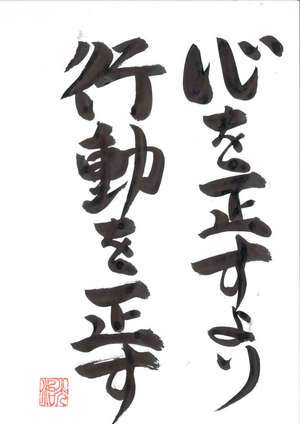 心を正すより
行動を正す